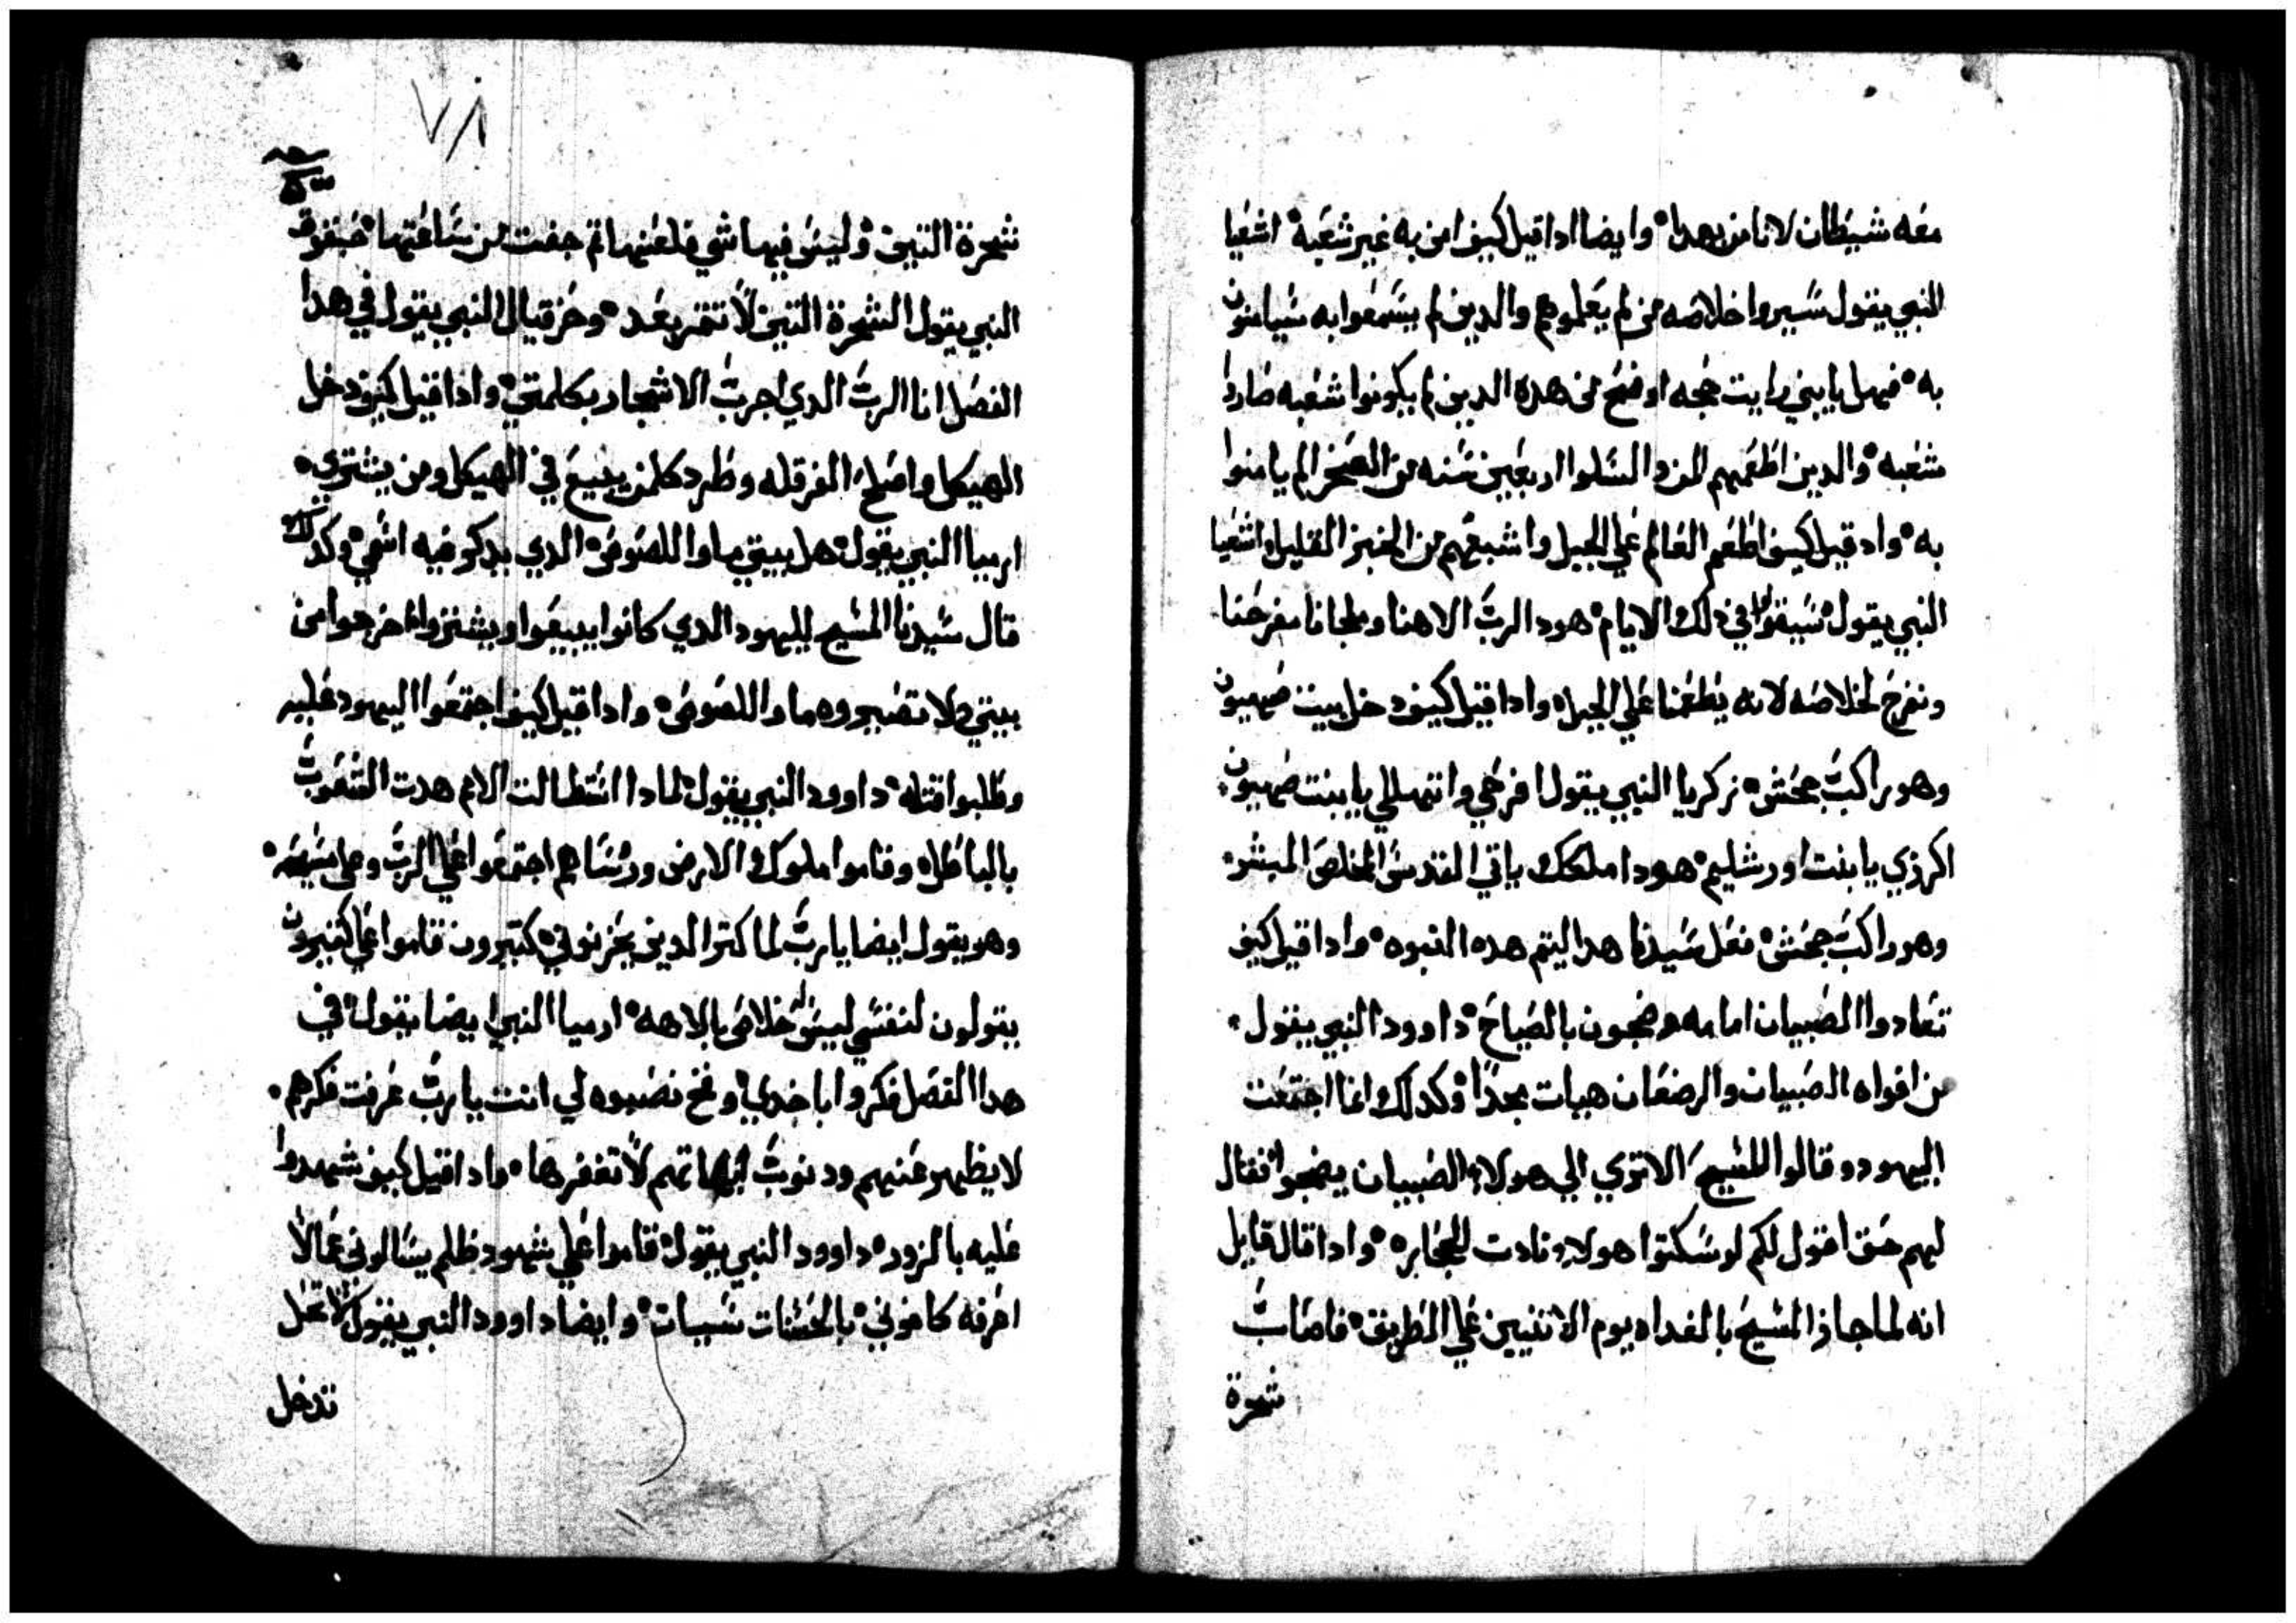 معه شيطان لانامن بهدا وايضا ادا قيل كيف امن به غير شعبه اشعيا
النبي يقول سيروا خلاصه من لم يعلموهم والدين لم يسمعوا به سيامنون
به فهل يابني رايت حجه اوضح من هده الدين لم يكونوا شعبه صاروا
شعبه والدين اطعمهم المن والسلوا اربعين سنه من الصخر لم يامنوا
به واد قيل كيف اطعم العالم علي الجبل واشبعهم من الخبز القليل اشعيا
النبي يقول سيقولوا في دلك الايام هودا الرب الاهنا وملجانا نفرحنا
ونفرح لخلاصه لانه يطعمنا علي الجبل وادا قيل كيف دخل بيت صهيون
وهو راكب جحش زكريا النبي يقول افرحي وانتهللي يابنت صهيون
اكرزي يابنت اورشليم هودا ملكك ياتي القديس المخلص المبشر
وهو راكب جحش فعل سيدنا هدا ليتم هده النبوه وادا قيل كيف
تعادوا الصبيان امامه وضجون بالصياح داوود النبي يقول
من افواه الصبيان والرضعان هيات مجدا وكدلك انما اجتمعت
اليهود وقالوا للمسيح الا تري الي هولاء الصبيان يضجوا فقال
لهم حق اقول لكم لو سكتوا هولاء نادت الحجاره وادا قال قايل
انه لما جاز المسيح بالغداه يوم الاتنيين علي الطريق فاصاب
شجرة
٧٨
شجرة التين وليس فيها شي فلعنها تم جفت من ساعتها حبقوق
النبي يقول الشجرة التين لا تتمر بعد وحزقيال النبي يقول في هدا
الفصل انا الرب الدي اجرب الاشجار بكلمتي وادا قيل كيف دخل
الهيكل واصلح الفرقله وطرد كلمن يبيع في الهيكل ومن يشتري
ارميا النبي يقول هل بيتي ماوا اللصوص الدي يدكر فيه اسمي وكدلك
قال سيدنا المسيح لليهود الدي كانوا يبيعوا ويشتروا اخرجوا من
بيتي ولا تصيروه ماوا اللصوص وادا قيل كيف اجتمعوا اليهود عليه
وطلبوا قتله داوود النبي يقول لمادا استطالت الامم هدت الشعوب
بالباطل وقاموا ملوك الارض ورؤساهم اجتمعوا علي الرب وعلي مسيحه
وهو يقول ايضا يارب لما كتروا الدين يحزنوني كتيرون قاموا علي كتيرون
يقولون لنفسي ليس له خلاص بالاهه ارميا النبي ايضا يقول في
هدا الفصل فكروا اباخدي وفخ نصبوه لي انت يارب عرفت فكرهم
لا يظهر عنهم ودنوب ابهاتهم لا تغفرها وادا قيل كيف شهدوا
عليه بالزور داوود النبي يقول قاموا علي شهود ظلم يسالوني عما لا
اعرفه كافوني بالحسنات سيات وايضا داوود النبي يقول لا تعل
تدخل